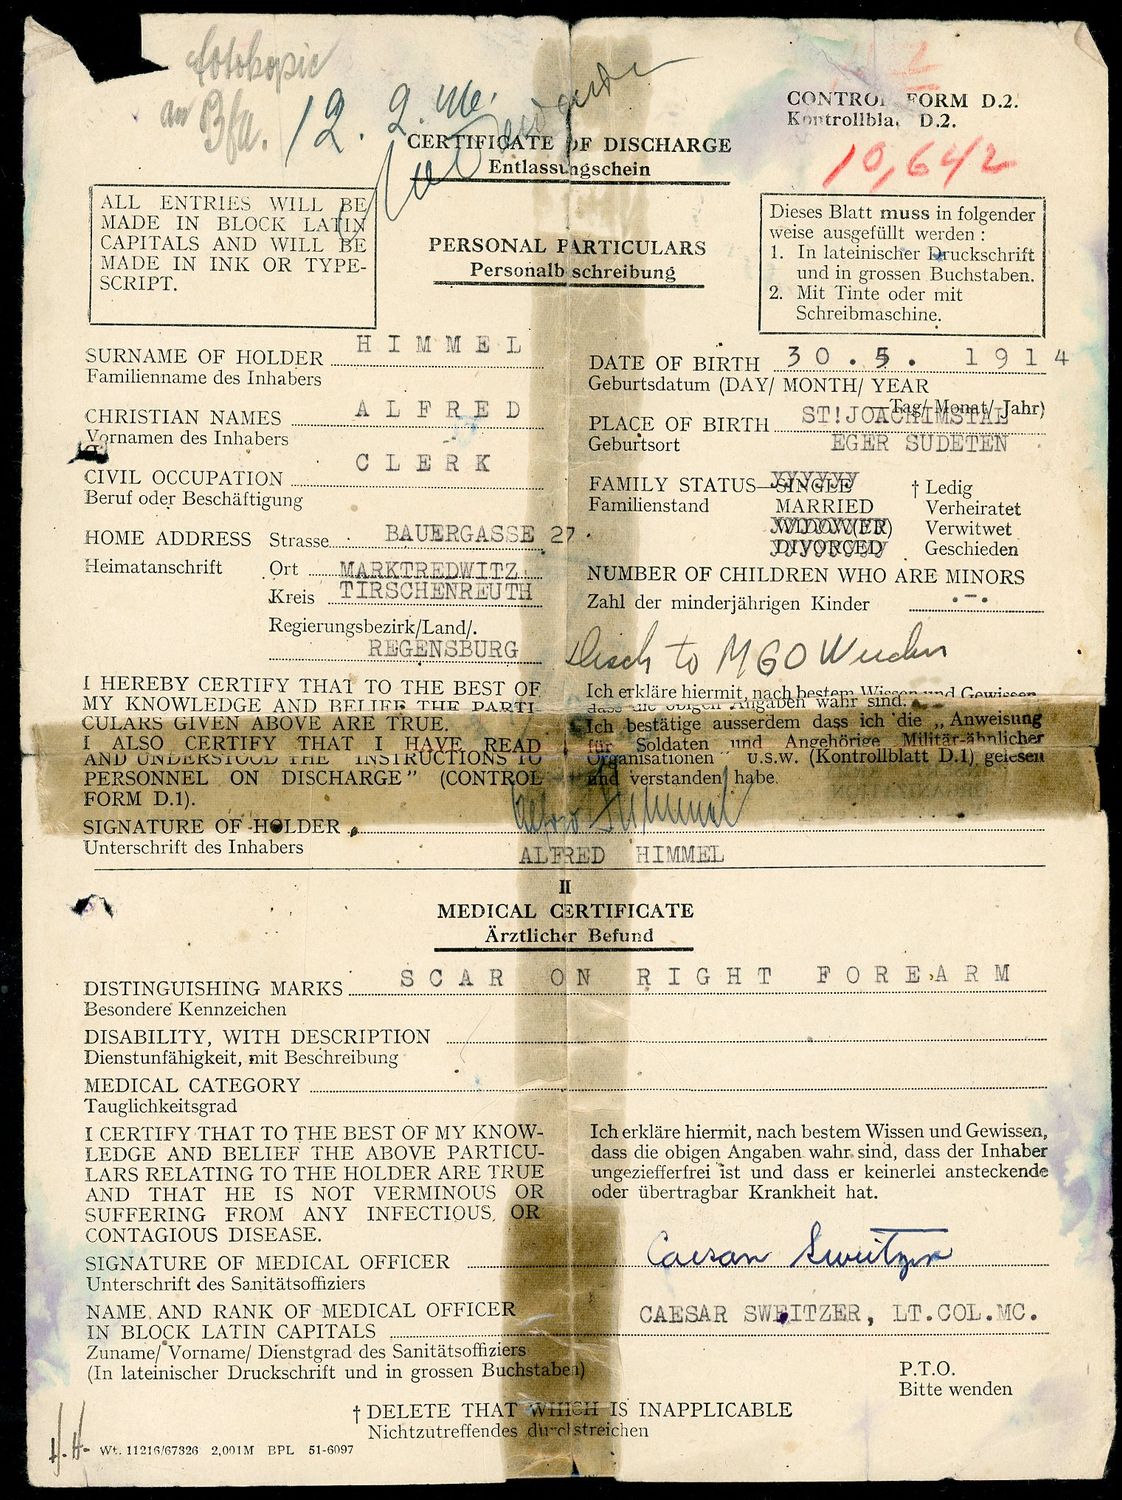 fotokopie
an Bfa. 12. 2.
CONTROL FORM D.2.
Kontrollblatt D.2.
CERTIFICATE OF DISCHARGE
Entlassungschein
10,642
ALL ENTRIES WILL BE
MADE IN BLOCK LATIN
CAPITALS AND WILL BE
MADE IN INK OR TYPE-
SCRIPT.
PERSONAL PARTICULARS
Personalbeschreibung
Dieses Blatt muss in folgender
weise ausgefüllt werden :
1. In lateinischer Druckschrift
und in grossen Buchstaben.
2. Mit Tinte oder mit
Schreibmaschine.
SURNAME OF HOLDER HIMMEL
Familienname des Inhabers
CHRISTIAN NAMES ALFRED
Vornamen des Inhabers
CIVIL OCCUPATION CLERK
Beruf oder Beschäftigung
HOME ADDRESS Strasse BAUERGASSE 27.
Heimatanschrift Ort MARKTREDWITZ
Kreis TIRSCHENREUTH
Regierungsbezirk/Land/.
REGENSBURG
DATE OF BIRTH 30.5. 1914
Geburtsdatum (DAY/ MONTH/ YEAR
Tag/ Monat/ Jahr)
PLACE OF BIRTH ST!JOACHIMSTAL
Geburtsort EGER SUDETEN
FAMILY STATUS— SINGLE † Ledig
Familienstand MARRIED Verheiratet
WIDOW(ER) Verwitwet
DIVORCED Geschieden
NUMBER OF CHILDREN WHO ARE MINORS
Zahl der minderjährigen Kinder .-.
Disch to MGO Weiden
I HEREBY CERTIFY THAT TO THE BEST OF
MY KNOWLEDGE AND BELIEF THE PARTI-
CULARS GIVEN ABOVE ARE TRUE.
I ALSO CERTIFY THAT I HAVE READ
AND UNDERSTOOD THE "INSTRUCTIONS TO
PERSONNEL ON DISCHARGE" (CONTROL
FORM D.1).
Ich erkläre hiermit, nach bestem Wissen und Gewissen,
dass die obigen Angaben wahr sind.
Ich bestätige ausserdem dass ich die „Anweisung
für Soldaten und Angehörige Militär-ähnlicher
Organisationen" u.s.w. (Kontrollblatt D.1) gelesen
und verstanden habe.
SIGNATURE OF HOLDER Alfred Himmel
Unterschrift des Inhabers
ALFRED HIMMEL
II
MEDICAL CERTIFICATE
Ärztlicher Befund
DISTINGUISHING MARKS SCAR ON RIGHT FOREARM
Besondere Kennzeichen
DISABILITY, WITH DESCRIPTION
Dienstunfähigkeit, mit Beschreibung
MEDICAL CATEGORY
Tauglichkeitsgrad
I CERTIFY THAT TO THE BEST OF MY KNOW-
LEDGE AND BELIEF THE ABOVE PARTICU-
LARS RELATING TO THE HOLDER ARE TRUE
AND THAT HE IS NOT VERMINOUS OR
SUFFERING FROM ANY INFECTIOUS OR
CONTAGIOUS DISEASE.
Ich erkläre hiermit, nach bestem Wissen und Gewissen,
dass die obigen Angaben wahr sind, dass der Inhaber
ungeziefferfrei ist und dass er keinerlei ansteckende
oder übertragbar Krankheit hat.
SIGNATURE OF MEDICAL OFFICER Caesar Sweitzer
Unterschrift des Sanitätsoffiziers
NAME AND RANK OF MEDICAL OFFICER
IN BLOCK LATIN CAPITALS CAESAR SWEITZER, LT.COL.MC.
Zuname/ Vorname/ Dienstgrad des Sanitätsoffiziers
(In lateinischer Druckschrift und in grossen Buchstaben)
P.T.O.
Bitte wenden
† DELETE THAT WHICH IS INAPPLICABLE
Nichtzutreffendes durchstreichen
H.H. Wt. 11216/67326 2,001M BPL 51-6097